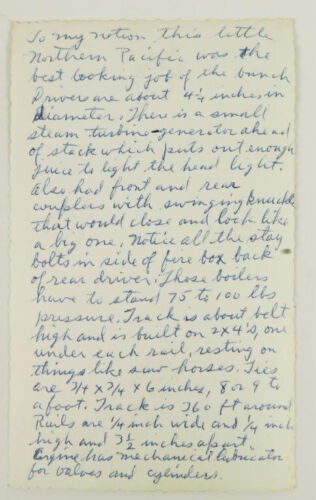 To my notion this little
Northern Pacific was the
best looking job of the bunch
Drivers are about 4¼ inches in
diameter. There is a small
steam turbine-generator ahead
of stack which puts out enough
juice to light the head light.
Also had front and rear
couplers with swinging knuckles
that would close and lock like
a big one. Notice all the stay
bolts in side of fire box back
of rear driver. These boilers
have to stand 75 to 100 lbs
pressure. Track is about belt
high and is built on 2x4's, one
under each rail, resting on
things like saw horses. Ties
are 3/4 x 3/4 x 6 inches, 8 or 9 to
a foot. Track is 360 ft around
Rails are ¼ inch wide and ¼ inch
high and 3½ inches apart.
Engine has mechanical lubricator
for valves and cylinders.